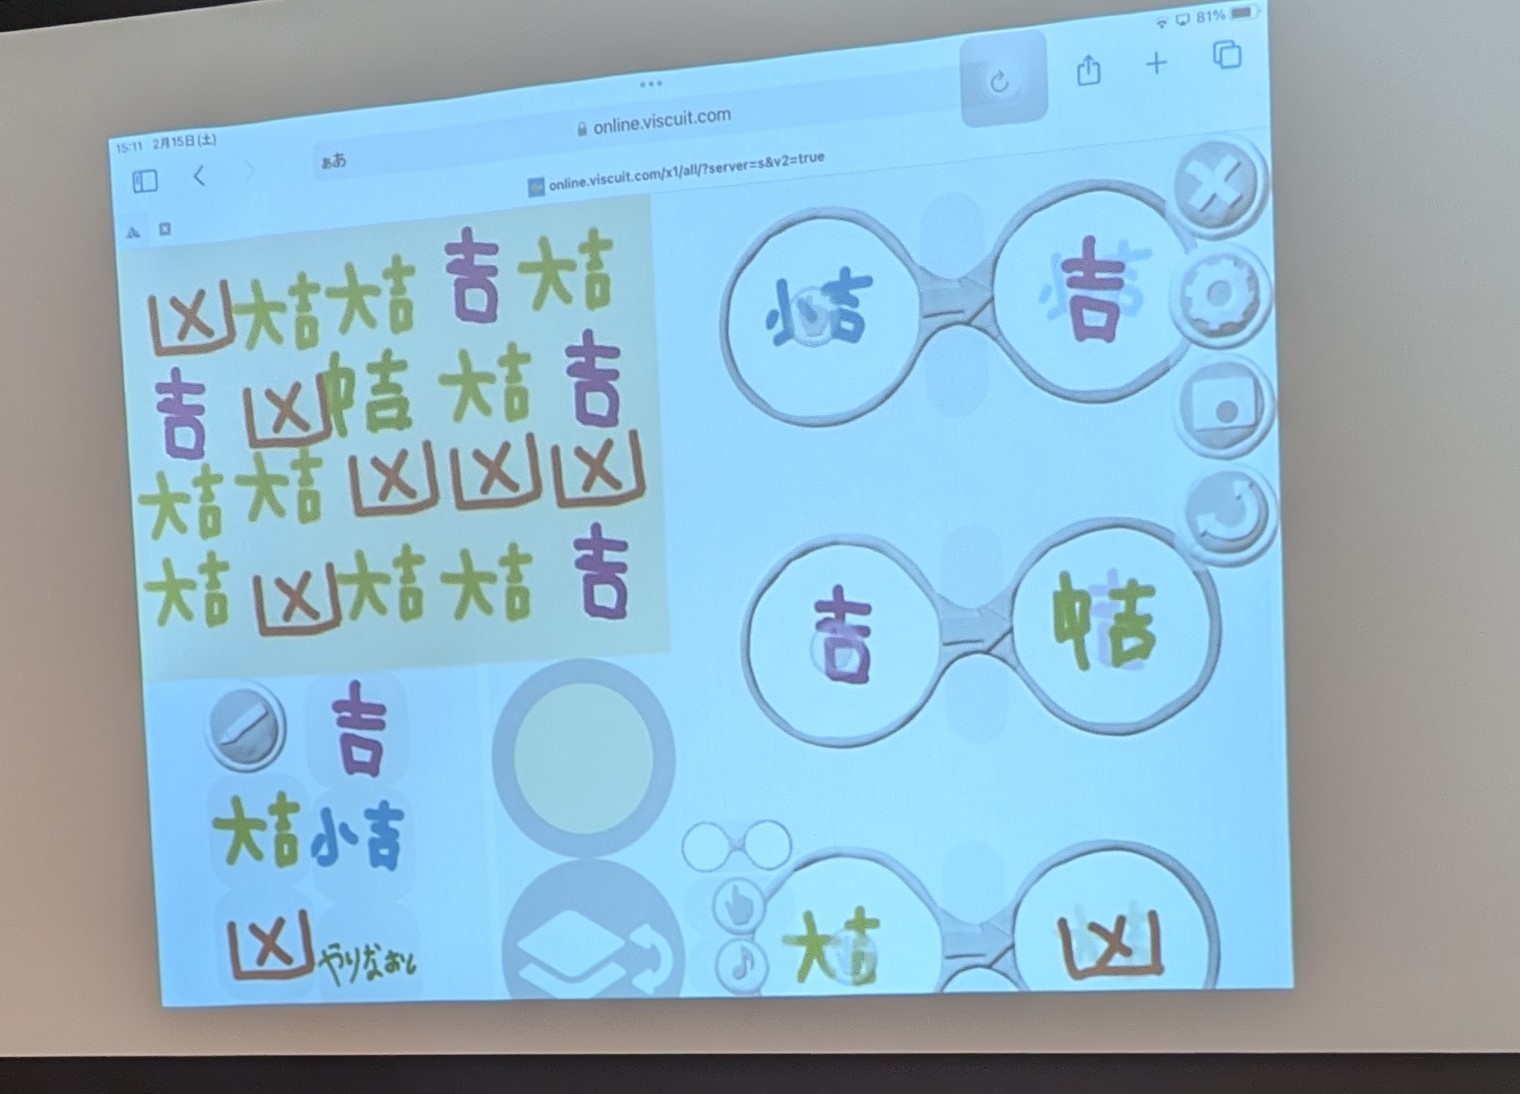 15:11 2月15日(土)
81%
ぁあ
online.viscuit.com
online.viscuit.com/x1/all/?server=s&v2=true
凶 大吉 大吉 吉 大吉
吉 凶 中吉 大吉 吉
大吉 大吉 凶 凶 凶
大吉 凶 大吉 大吉 吉
吉
大吉 小吉
凶 やりなおし
小吉 吉 小吉
吉 中吉 吉
大吉 凶